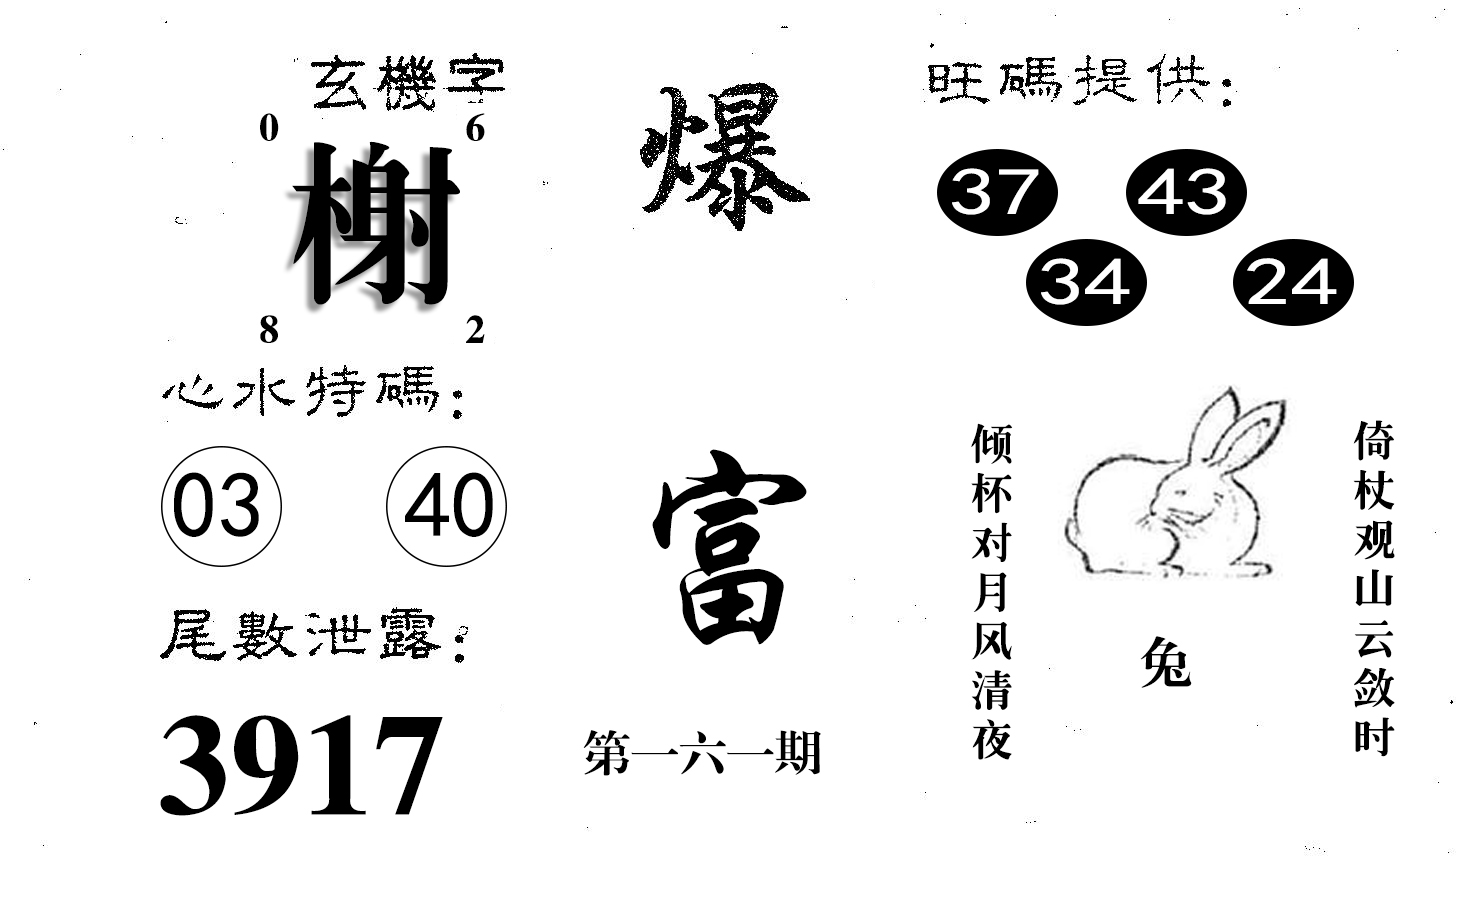 玄機字
0 6
榭
8 2
心水特碼：
03 40
尾數泄露：
3917
爆
富
第一六一期
旺碼提供：
37 43
34 24
倚杖观山云敛时
兔
倾杯对月风清夜